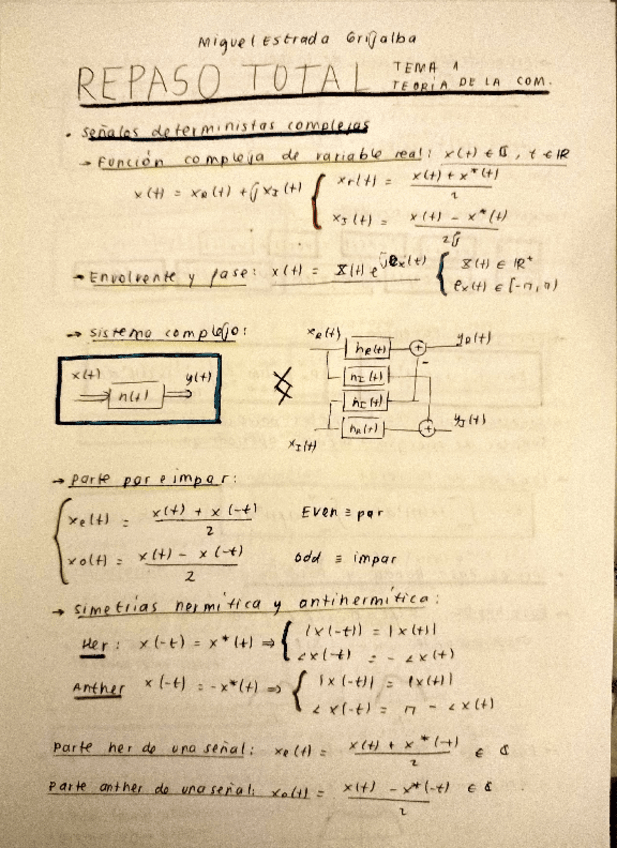 Miguel Estrada Grijalba
REPASO TOTAL TEMA 1 TEORÍA DE LA COM.
• Señales deterministas complejas
→ Función compleja de variable real: x(t) ∈ ℂ, t ∈ ℝ
x(t) = x_R(t) + j x_I(t) { x_r(t) = (x(t) + x*(t)) / 2
x_I(t) = (x(t) - x*(t)) / 2j
→ Envolvente y fase: x(t) = X(t) e^{jφ_x(t)} { X(t) ∈ ℝ⁺
φ_x(t) ∈ [-π, π)
→ Sistema complejo:
x(t) h(t) y(t)
x_R(t) h_R(t) + y_R(t)
-
h_I(t)
h_I(t)
x_I(t) h_R(t) + y_I(t)
→ Parte par e impar:
{ x_e(t) = (x(t) + x(-t)) / 2 Even ≡ par
x_o(t) = (x(t) - x(-t)) / 2 odd ≡ impar
→ Simetrías hermítica y antihermítica:
Her: x(-t) = x*(t) ⇒ { |x(-t)| = |x(t)|
∠x(-t) = -∠x(t)
Anther x(-t) = -x*(t) ⇒ { |x(-t)| = |x(t)|
∠x(-t) = π - ∠x(t)
Parte her de una señal: x_e(t) = (x(t) + x*(-t)) / 2 ∈ ℂ
Parte anther de una señal: x_o(t) = (x(t) - x*(-t)) / 2 ∈ ℂ